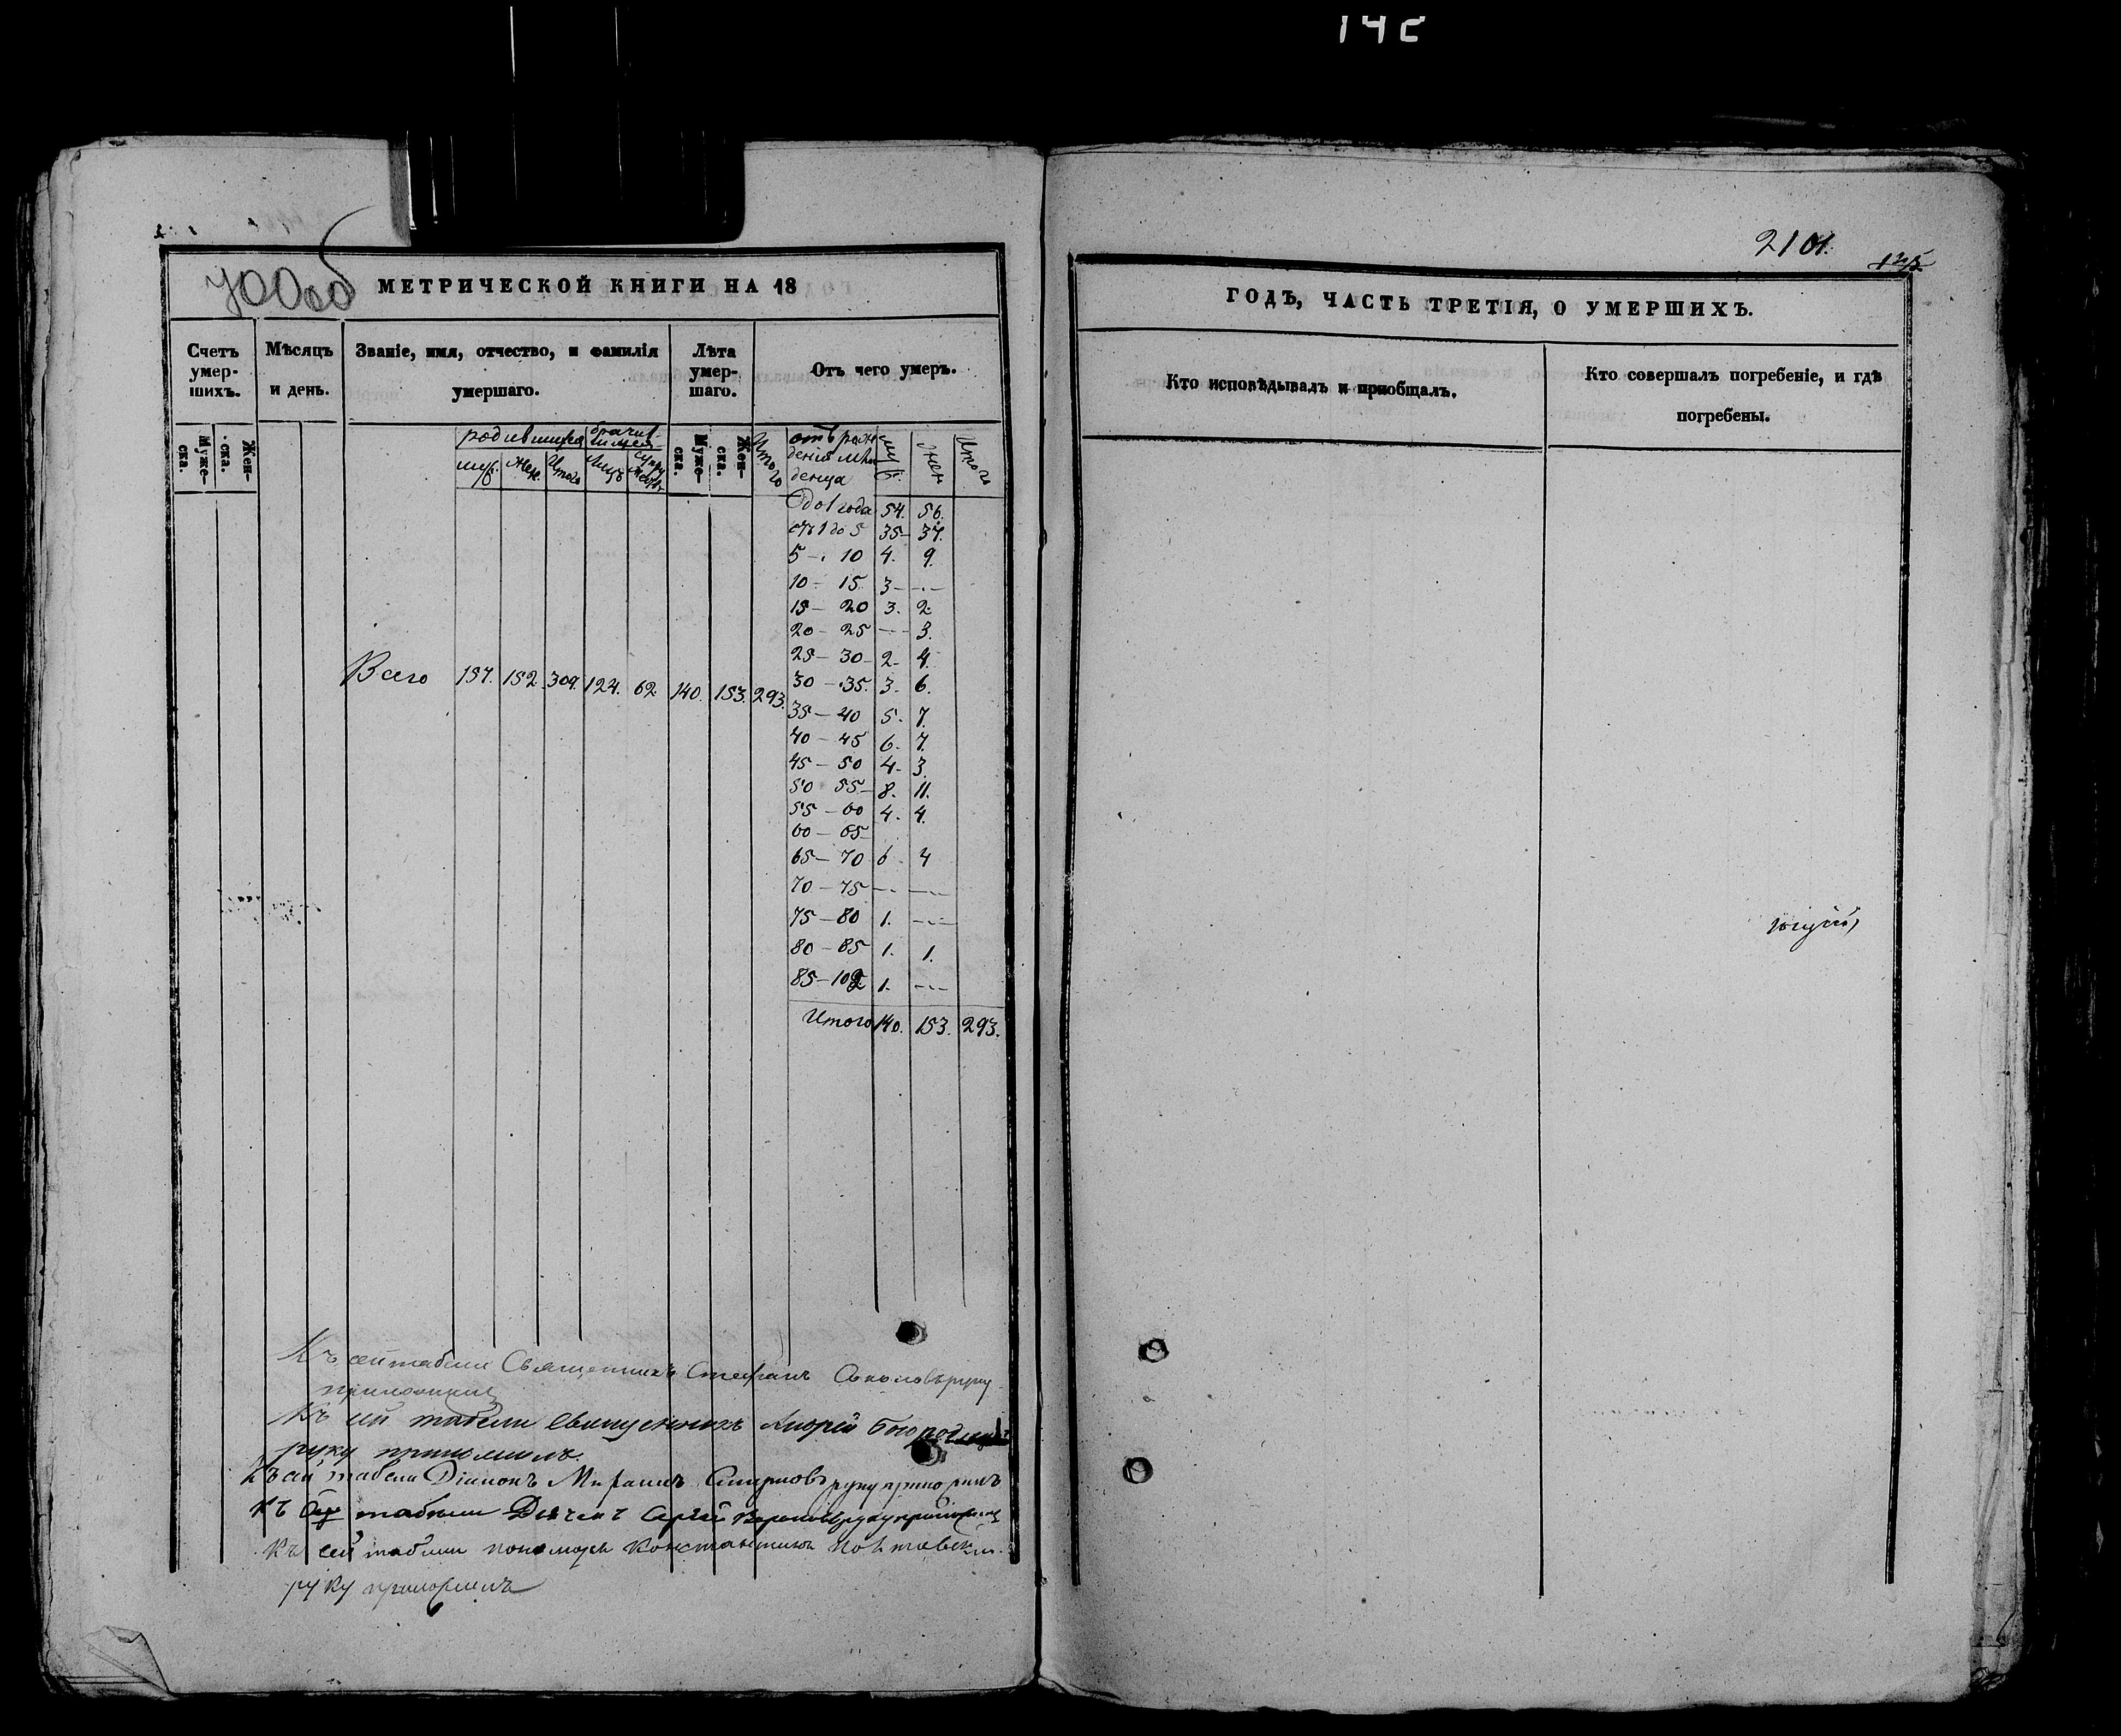 142
700 об
МЕТРИЧЕСКОЙ КНИГИ НА 18
Счетъ умер-шихъ.
Муже-ска.
Жен-ска.
Мѣсяцъ и день.
Званіе, имя, отчество, и фамилія умершаго.
Лѣта умер-шаго.
Муже-ска.
Жен-ска.
Итого
Отъ чего умеръ.
родившихся
муж. жен. Итого
отъ рож
денія мла
денца
муж. жен Итого
до 1 года 54. 56.
отъ 1 до 5 35 – 37.
5 – 10 4. 9.
10 – 15 3 – –
15 – 20 3. 2.
20 – 25 – 3.
25 – 30 – 2. 4.
30 – 35. 3. 6.
35 – 40 5. 7.
40 – 45 6. 7.
45 – 50 4. 3.
50 55 – 8. 11.
55 – 60 4. 4.
60 – 65
65 – 70 6 4
70 – 75 – –
75 – 80 1. –
80 – 85 1. 1.
85 – 102 1. –
Всего 157. 152. 309. 124. 62. 140. 153. 293.
Итого 140. 153. 293.
Къ сей табели Священникъ Стефанъ Соколовъ руку
приложилъ
Къ сей табели священникъ Андрей
руку приложилъ.
Къ сей табели Діаконъ Михаилъ Смирновъ руку приложилъ
Къ сей табели Дьячекъ Сергей руку приложилъ
Къ сей табели пономарь Константинъ
руку приложилъ
2101.
ГОДЪ, ЧАСТЬ ТРЕТІЯ, О УМЕРШИХЪ.
Кто исповѣдывалъ и пріобщалъ.
Кто совершалъ погребеніе, и гдѣ
погребены.